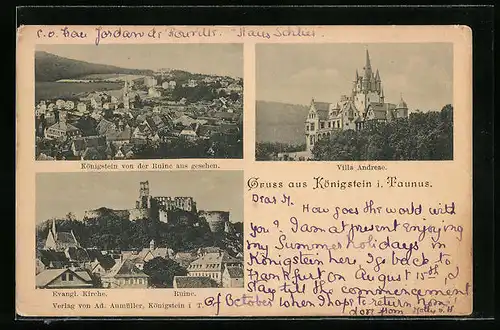 c.o. Cau Jordan de Haus Schlier.
Königstein von der Ruine aus gesehen.
Villa Andreae.
Gruss aus Königstein i. Taunus.
Dear M.
How goes the world with
you? I am at present enjoying
my Summer holidays in
Königstein here. I go back to
Frankfurt on August 15th. I
stay till the commencement
of October when I hope to return home.
Love from Molly v. H
Evangl. Kirche. Ruine.
Verlag von Ad. Aumüller, Königstein i. T.